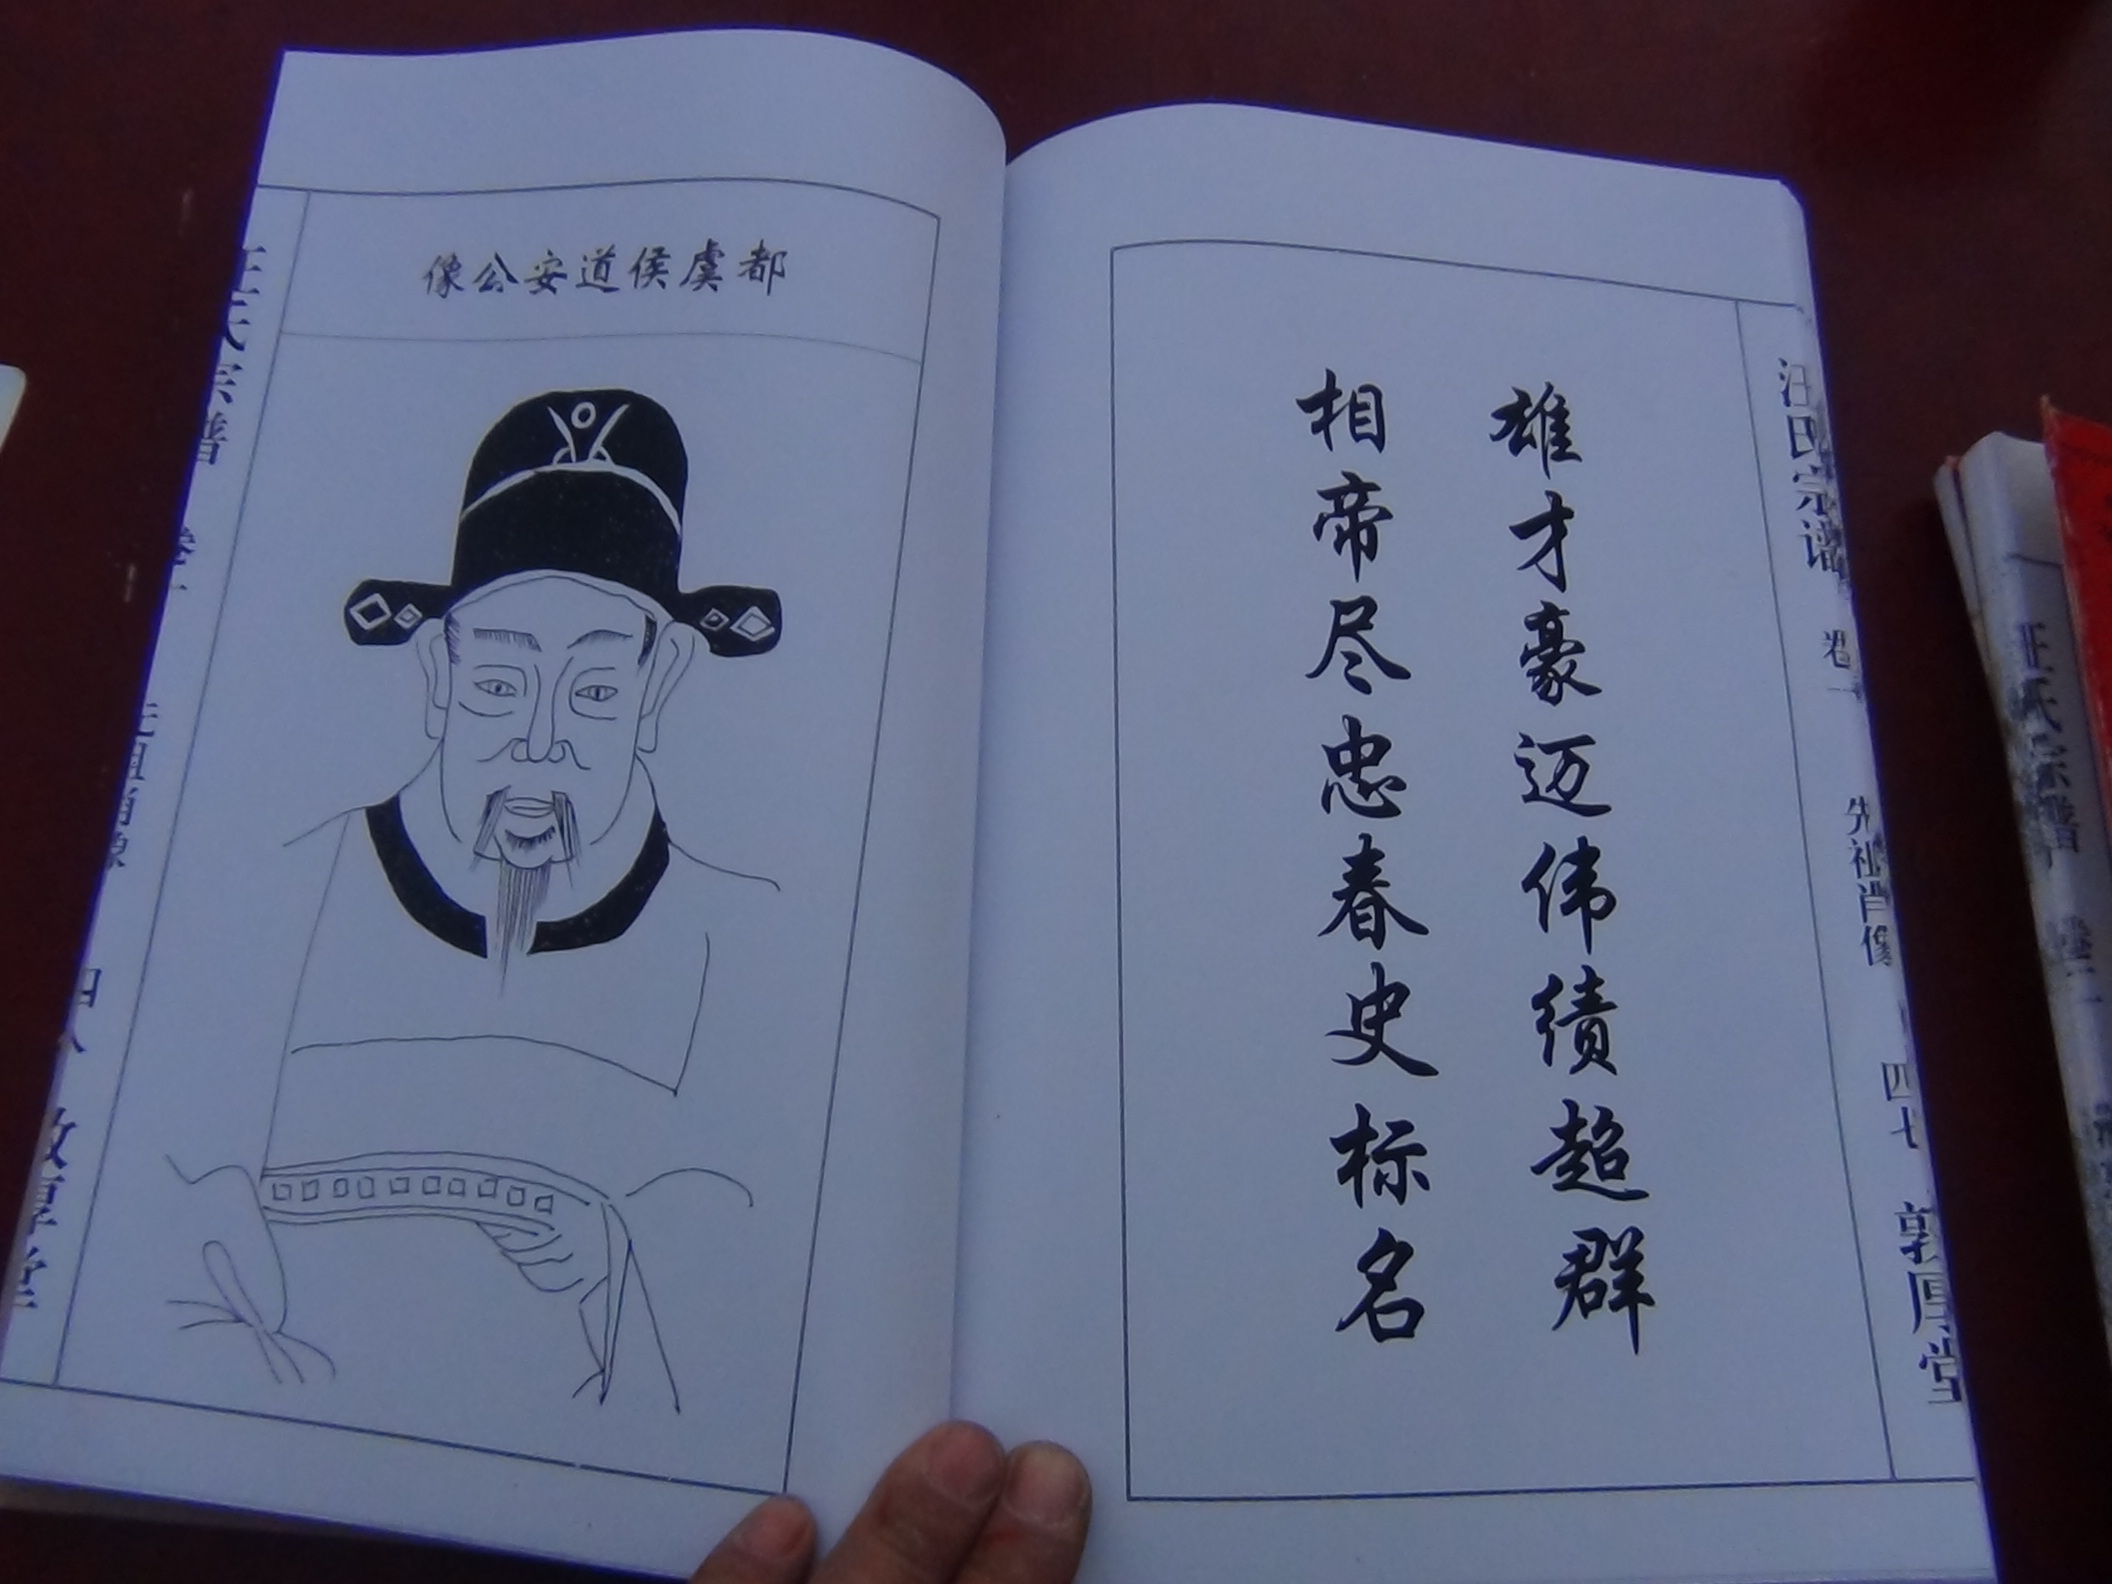 汪氏宗谱 卷一 先祖肖像 四七 敦厚堂
雄才豪迈伟绩超群
相帝尽忠春史标名
都虞侯道安公像
汪氏宗谱 卷一 先祖肖像 四八 敦厚堂
汪氏宗谱 卷二